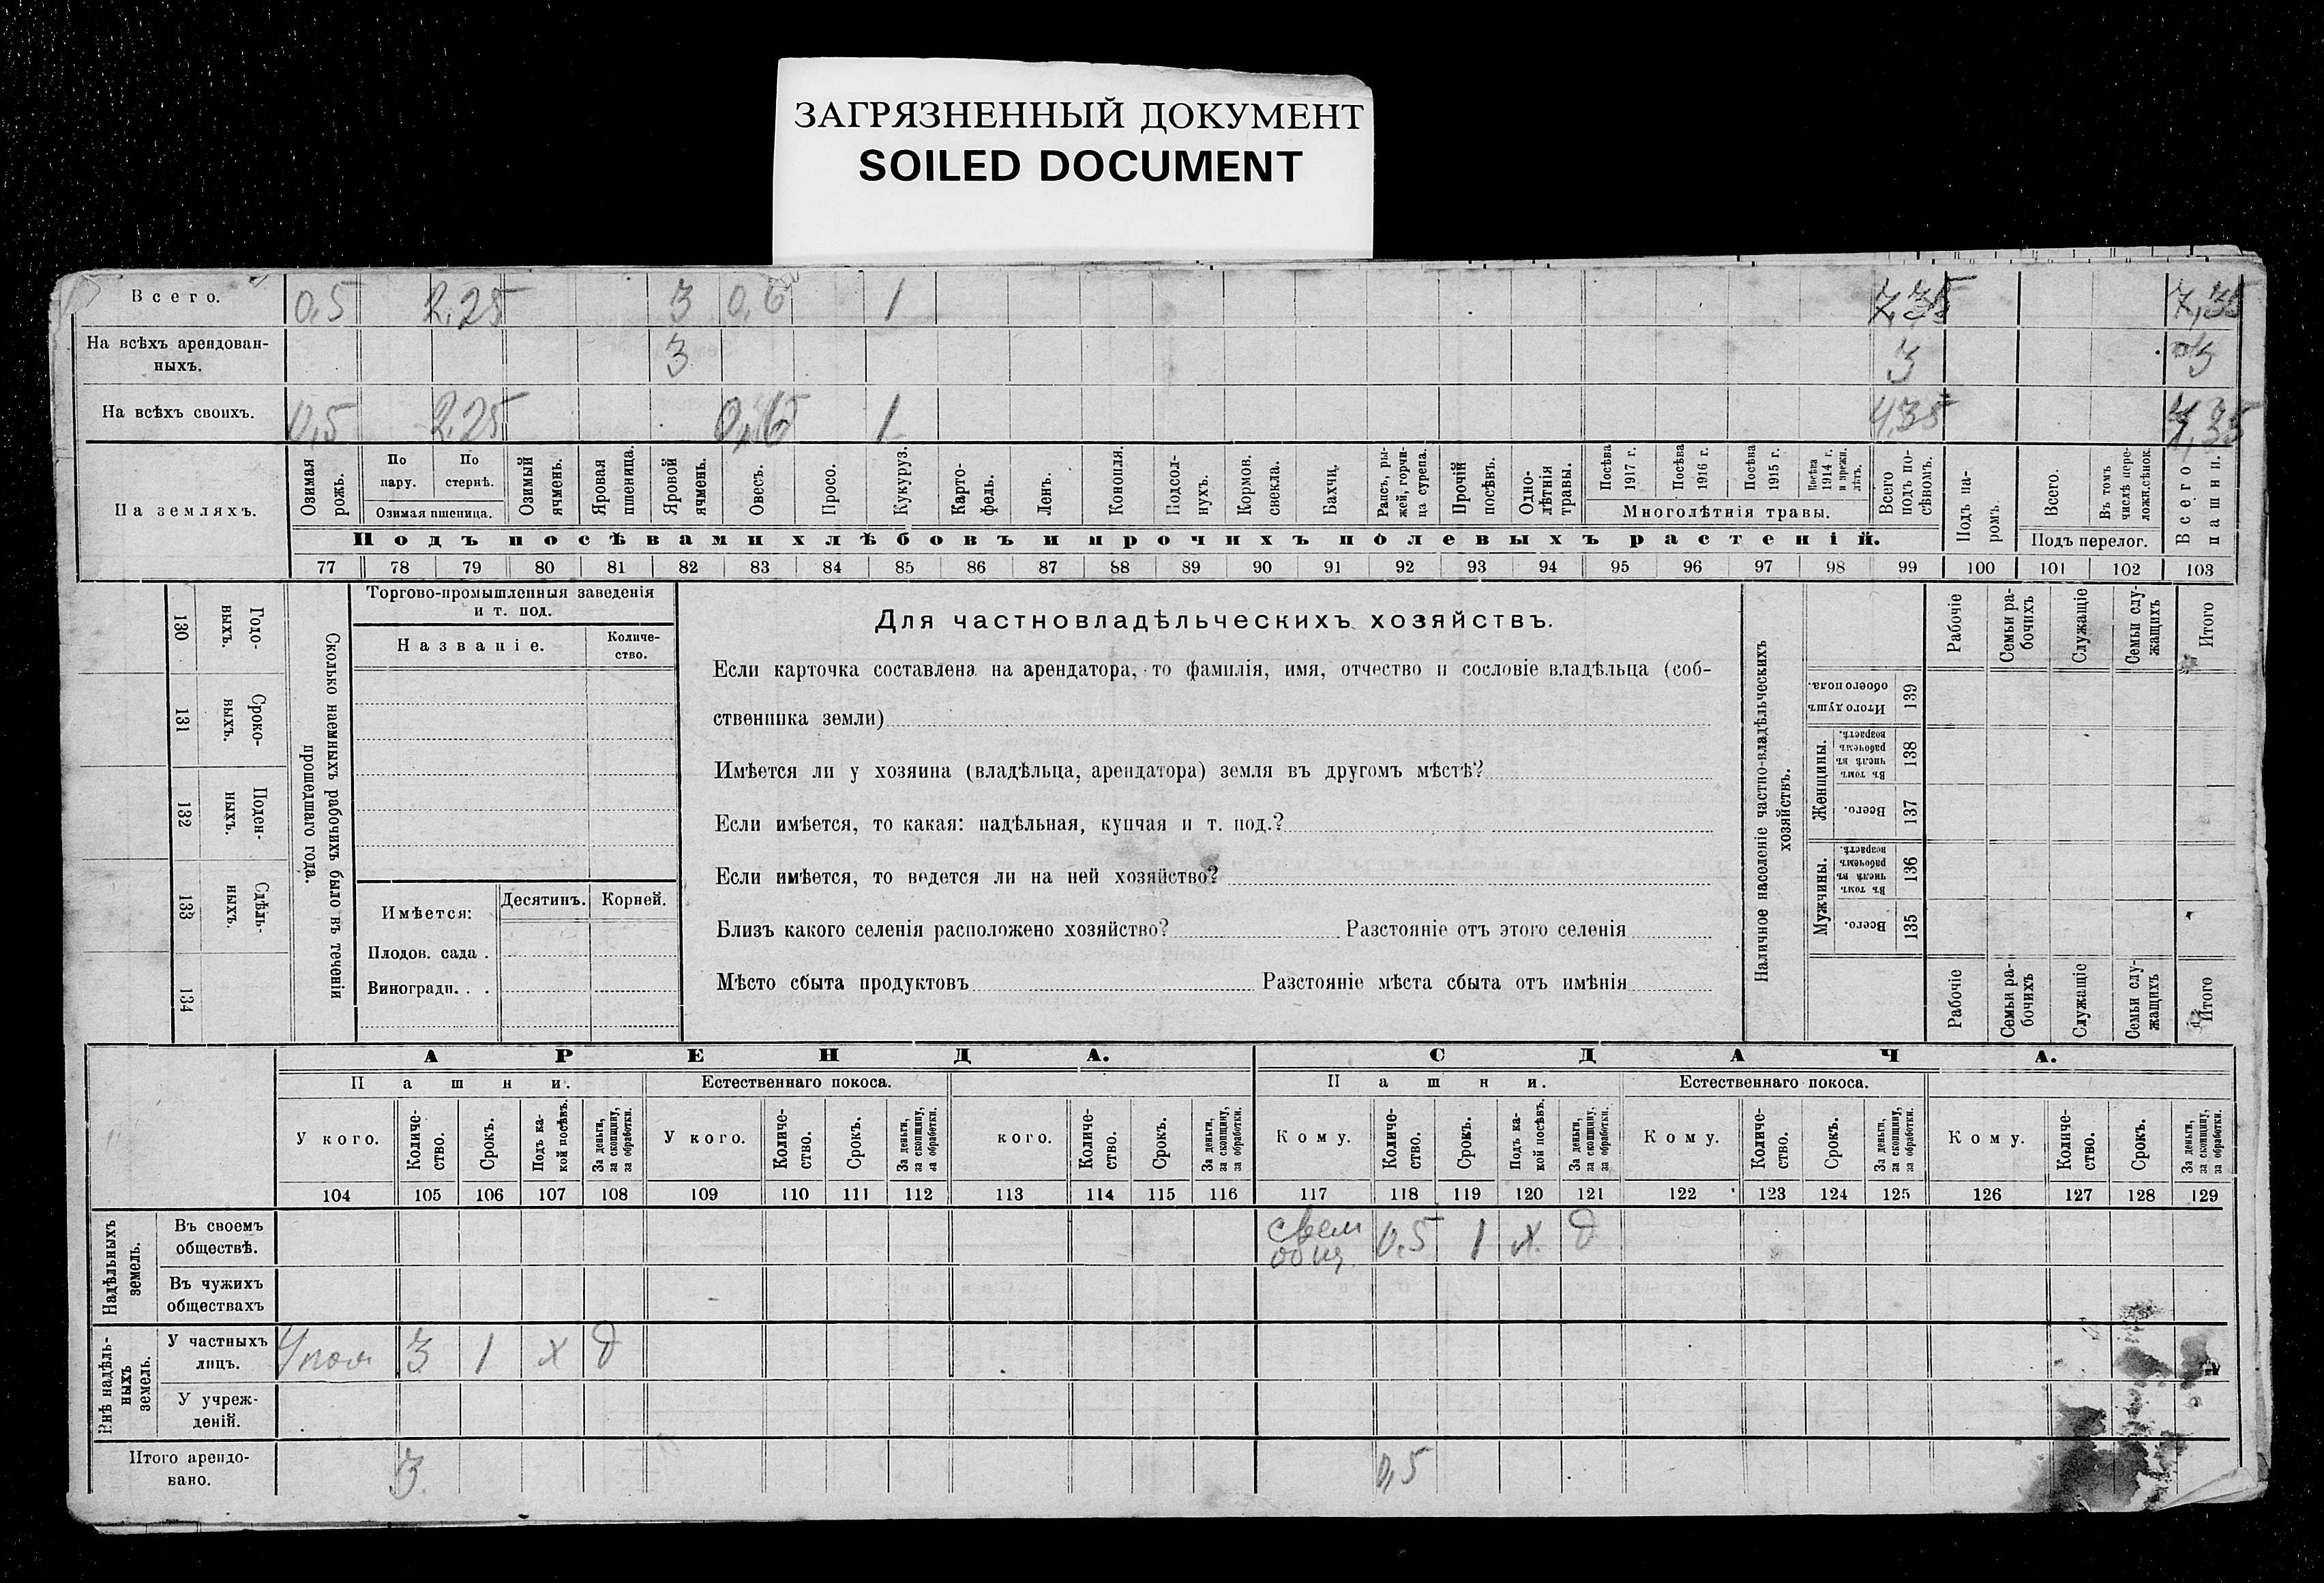 ЗАГРЯЗНЕННЫЙ ДОКУМЕНТ
SOILED DOCUMENT
Всего. 0,5 2,25 3 0,6 1 7,35 7,35
На всѣхъ арендован-
ныхъ. 3 3 3
На всѣхъ своихъ. 0,5 2,25 0,6 1 4,35 4,35
На земляхъ.
Озимая рожь.
По пару.
По стернѣ.
Озимая пшеница.
Озимый ячмень.
Яровая пшеница.
Яровой ячмень.
Овесъ.
Просо.
Кукуруз.
Карто-
фель.
Ленъ.
Конопля.
Подсол-
нухъ.
Кормов.
свекла.
Бахчи.
Рапсъ, ры-
жей, горчи-
ца сурепа.
Прочій посѣвъ.
Одно-
лѣтнія травы.
Посѣва 1917 г.
Посѣва 1916 г.
Посѣва 1915 г.
Посѣва 1914 г. и прежн. лѣтъ.
Многолѣтнія травы.
Всего подъ по-
сѣвомъ.
Подъ па-
ромъ.
Всего.
Въ томъ числѣ пере-
ложн.сѣнок.
Подъ перелог.
Всего пашни.
Подъ посѣвами хлѣбовъ и прочихъ полевыхъ растеній.
77 78 79 80 81 82 83 84 85 86 87 88 89 90 91 92 93 94 95 96 97 98 99 100 101 102 103
130 Годо-
выхъ.
131 Сроко-
выхъ.
132 Поден-
ныхъ.
133 Сдѣль-
ныхъ.
134
Сколько наемныхъ рабочихъ было въ теченіи
прошедшаго года.
Торгово-промышленныя заведенія
и т. под.
Названіе.
Количе-
ство.
Имѣется:
Десятинъ. Корней.
Плодов. сада .
Виноградн. . .
Для частновладѣльческихъ хозяйствъ.
Если карточка составлена на арендатора, то фамилія, имя, отчество и сословіе владѣльца (соб-
ственника земли)
Имѣется ли у хозяина (владѣльца, арендатора) земля въ другомъ мѣстѣ?
Если имѣется, то какая: надѣльная, купчая и т. под.?
Если имѣется, то ведется ли на ней хозяйство?
Близъ какого селенія расположено хозяйство? Разстояніе отъ этого селенія
Мѣсто сбыта продуктовъ Разстояніе мѣста сбыта отъ имѣнія
Наличное населеніе частно-владѣльческихъ
хозяйствъ.
Рабочіе
Семьи ра-
бочихъ
Служащіе
Семьи слу-
жащихъ
Итого
Итого душъ
обоего пола.
139
Женщины.
Въ томъ числѣ въ рабочемъ возрастѣ.
138
Всего.
137
Мужчины.
Въ томъ числѣ въ рабочемъ возрастѣ.
136
Всего.
135
Рабочіе
Семьи ра-
бочихъ
Служащіе
Семьи слу-
жащихъ
Итого
АРЕНДА. СДАЧА.
Пашни. Естественнаго покоса. Пашни. Естественнаго покоса.
У кого.
Количе-
ство.
Срокъ.
Подъ ка-
кой посѣвъ.
За деньги,
за скопщину,
за обработки.
У кого.
Количе-
ство.
Срокъ.
За деньги,
за скопщину,
за обработки.
кого.
Количе-
ство.
Срокъ.
За деньги,
за скопщину,
за обработки.
Кому.
Количе-
ство.
Срокъ.
Подъ ка-
кой посѣвъ.
За деньги,
за скопщину,
за обработки.
Кому.
Количе-
ство.
Срокъ.
За деньги,
за скопщину,
за обработки.
Кому.
Количе-
ство.
Срокъ.
За деньги,
за скопщину,
за обработки.
104 105 106 107 108 109 110 111 112 113 114 115 116 117 118 119 120 121 122 123 124 125 126 127 128 129
Надѣльныхъ
земель.
Въ своемъ
обществѣ. 0,5 1 х д
Въ чужихъ
обществахъ
Внѣ надѣль-
ныхъ
земель.
У частныхъ
лицъ. 3 1 х д
У учреж-
деній.
Итого арендо-
вано. 3 0,5